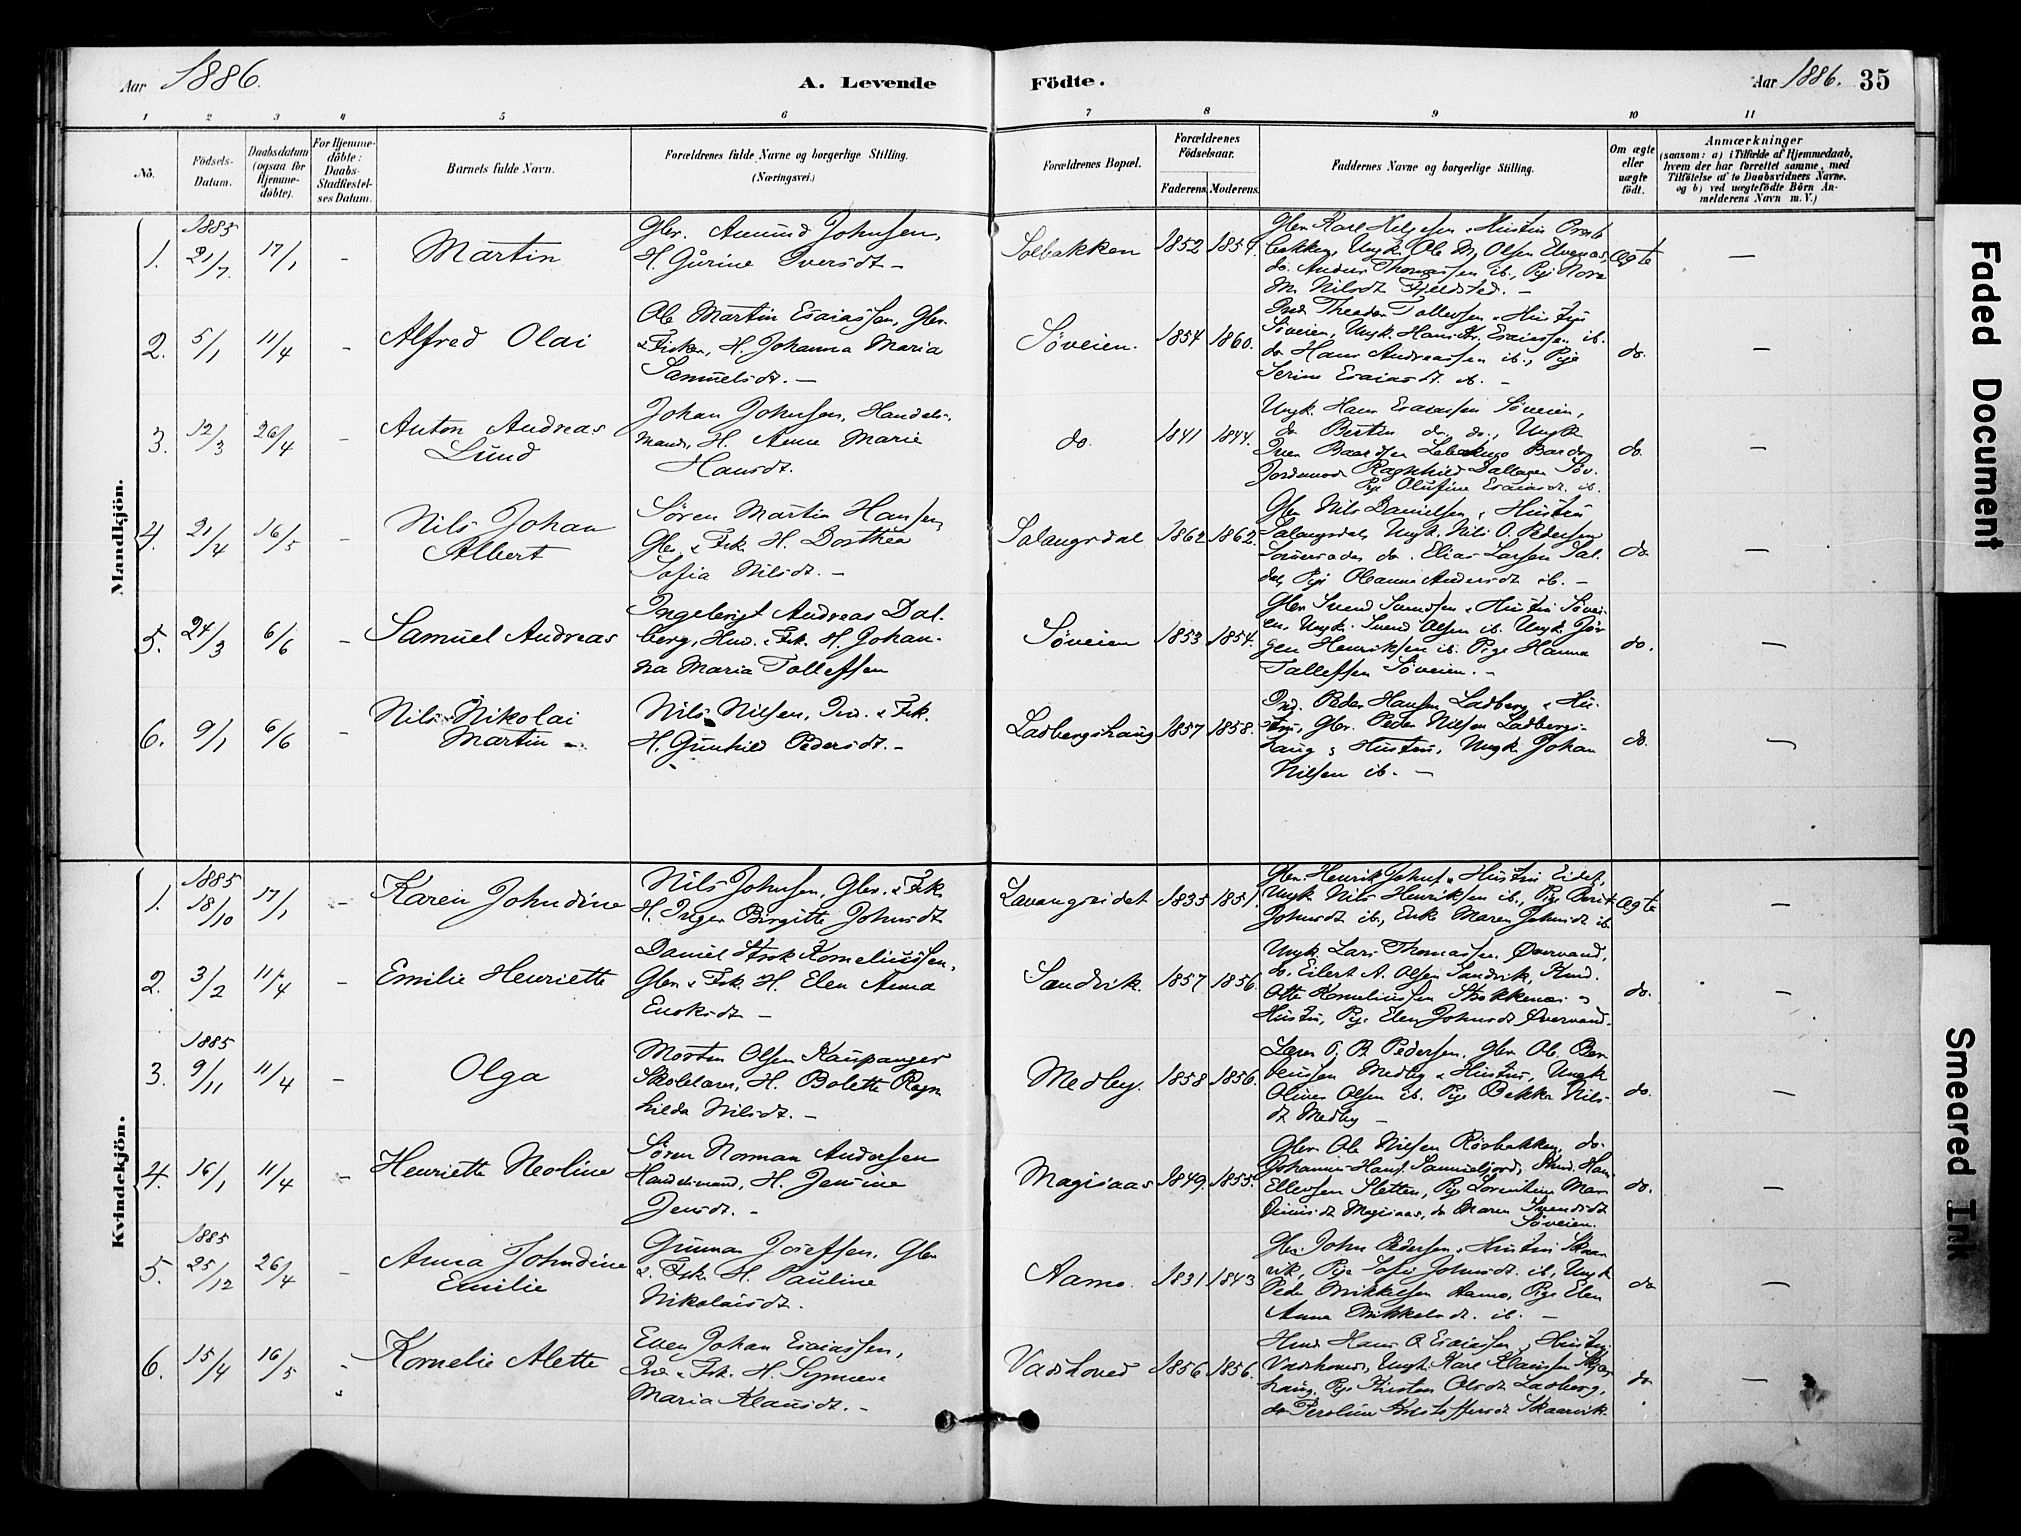 Aar 1886.
A. Levende
Födte.
Aar 1886. 35
1 2 3 4 5 6 7 8 9 10 11
No.
Födsels-Datum.
Daabsdatum (ogsaa for Hjemme-döbte).
For Hjemme-döbte: Daabs-Stadfæstel-ses Datum.
Barnets fulde Navn.
Forældrenes fulde Navne og borgerlige Stilling. (Næringsvei.)
Forældrenes Bopæl.
Forældrenes Födselsaar.
Faderens. Moderens.
Faddernes Navne og borgerlige Stilling.
Om ægte eller uægte födt.
Anmærkninger
(saasom: a) i Tilfælde af Hjemmedaab, hvem der har forrettet samme, med Tilföielse af to Daabsvidners Navne. og b) ved uægtefödte Börn An-melderens Navn m. V.)
Mandkjön.
1. 1885 2/7. 17/1 - Martin
Gbr. Amund Johnsen,
H. Gurine Iversdt -
Solbakken 1852 1854.
Ægte -
2. 5/1 11/4 - Alfred Olai
Ole Martin Esaiassen, Gbr.
& Fisker, H. Johanna Maria
Samuelsdt. -
Søveien. 1854 1860.
Søveien, Ungk. Hans Kr. Esaiassen ib.
do Hans Andreassen ib., Pige
Serine Esaiasdt. ib. -
do. -
3. 12/3 26/4 - Anton Andreas
Lund
Johan Johnsen, Handels-
mand, H. Anne Marie
Hansdt.
do. 1841 1844.
Ungk. Hans Esaiassen Søveien,
do Bertin do. do., Ungk
Pige Olufine Esaiasdt. ib.
do. -
4. 21/4 16/5 - Nils Johan
Albert
Søren Martin Hansen
Gbr. & Fsk. H. Dorthea
Sofia Nilsdt. -
Salangsdal 1862 1862.
Gbr Nils Danielsen & Hustru
Salangsdal, Ungk. Nils O. Pedersen
do. Elias Larsen Sal-
dal, Pige Oleanna Andersdt ib. -
do. -
5. 24/3 6/6 - Samuel Andreas
Ingebrigt Andreas Dal-
berg, Hmd. & Fsk. H. Johan-
na Maria Tollefsen
Søveien 1853 1854.
en, Ungk. Svend Olsen ib. Ungk. Jør
gen Henriksen ib. Pige Hanna
Tollefsen Søveien. -
do. -
6. 9/1 6/6 - Nils Nikolai
Martin -
Nils Nilsen, Ind. & Fsk.
H. Gunhild Pedersdt. -
Ladbergshaug 1857 1858.
Ind. Peder Hansen Ladberg & Hu-
stru, Gbr. Peder Nilsen Ladbergs-
haug & Hustru, Ungk. Johan
Nilsen ib. -
do. -
Kvindekjön.
1. 1885 18/10 17/1 - Karen Johndine
Nils Johnsen, Gbr. & Fsk.
H. Inger Birgitte Johnsdt
Lavangseidet 1835 1851.
Gbr. Henrik Johns. & Hustru Eidet,
Ungk Nils Henriksen ib., Pige Berit
Johnsdt ib., Enke Maren Johnsdt ib.
Ægte -
2. 3/2 11/4 - Emilie Henriette
Daniel Kornelius sen,
Gbr. & Fsk. H. Elen Anna
Enoksdt -
Sandvik. 1857 1856.
Ungk. Lars Thomassen Øvervand,
do. Eilert A. Olsen Sandvik, Hmd.
Otto Korneliussen Strokkenæs &
Hustru, Pige Elen Johnsdt Øvervand.
do. -
3. 1885 9/11 11/4 - Olga
Morten Olsen Kaupanger
Skolelærer, H. Bolette Ragn
hilda Nilsdt. -
Medby. 1858 1856.
Lærer O. B. Pedersen, Gbr Ole Ben
Medby & Hustru, Ungk
Oliver Olsen ib. Pige Bekka Nils-
dt Medby -
do. -
4. 16/1 11/4 - Henriette Neoline
Søren Norman Andersen
Handelsmand, H. Jensine
Jensdt. -
Magisaas 1849. 1855.
Gbr Ole Nilsen Rødbakken, do.
Ellevsen Sletten, Pige
Magisaas, do Maren Svendsdt
Søveien.
do. -
5. 1885 25/12 26/4 - Anna Johndine
Emilie
Gunnar Josefsen, Gbr
& Fsk. H. Pauline
Nikolaisdt.
Aamo. 1831 1843
Gbr. John Pedersen & Hustru Skaar
vik, Pige Sofie Johnsdt. ib., Ungk
Peder Mikkelsen Aamo, Pige Elen
Anna Mikkelsdt. ib. -
do -
6. 15/4 16/5 - Kornelie Alette
Even Johan Esaiassen,
Ind & Fsk. H. Synneve
Maria Klausdt. -
Vadshoved 1856 1856.
Hmd Hans A Esaiassen & Hustru
Vadshoved, Ungk Karl Klausen
haug. Pige Kirsten Olsdt Ladberg,
do Peroline Kristoffersdt Skaarvik.
do -
Faded Document
Smeared Ink